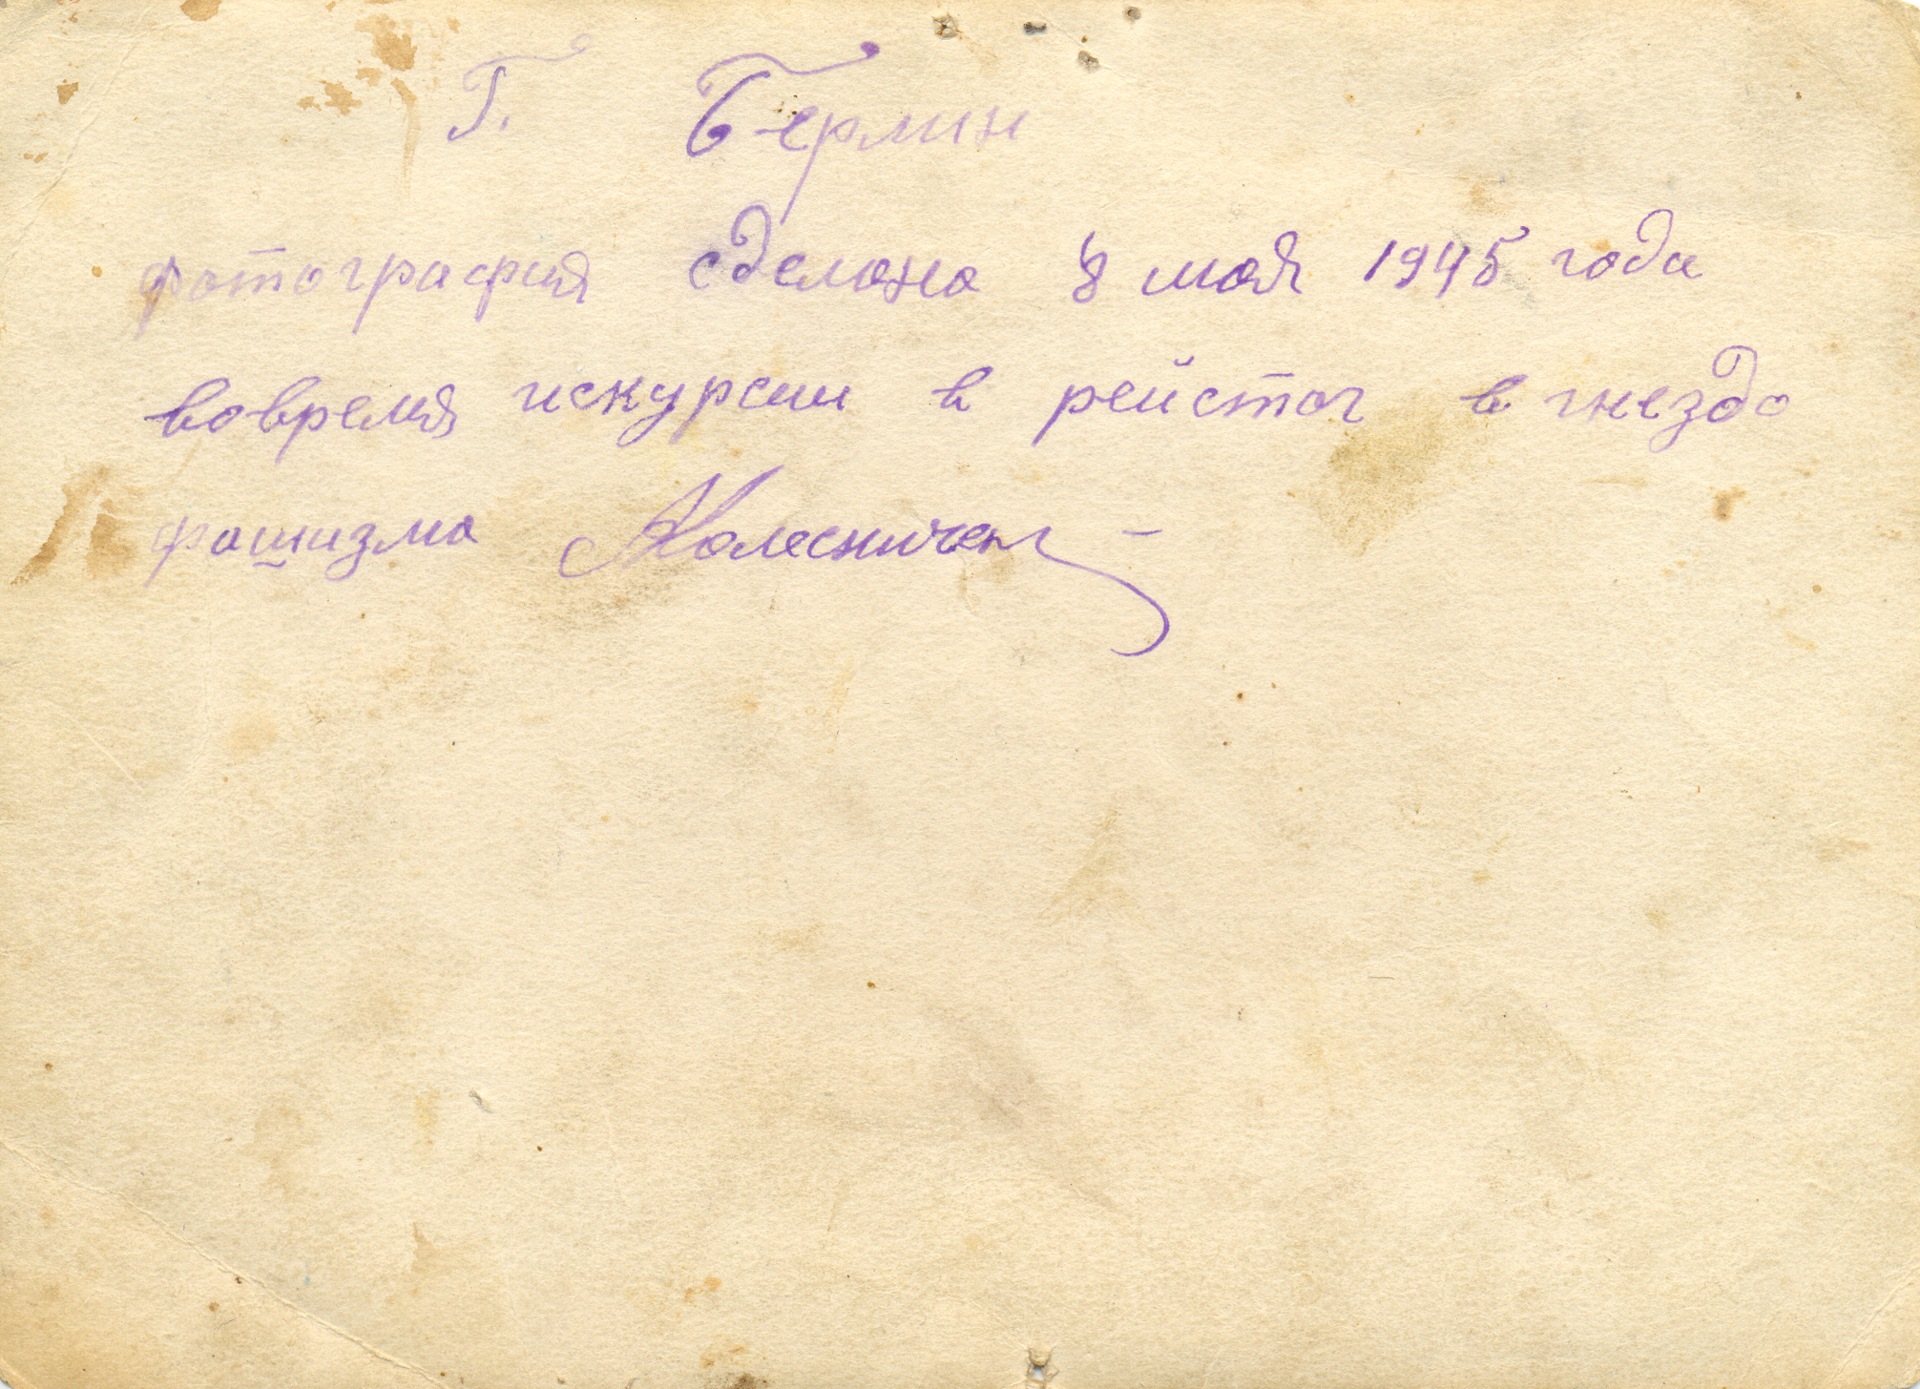 Г. Берлин
фотография сделана 8 мая 1945 года
вовремя искурсии в рейстаг в гнездо
фашизма Колесничен